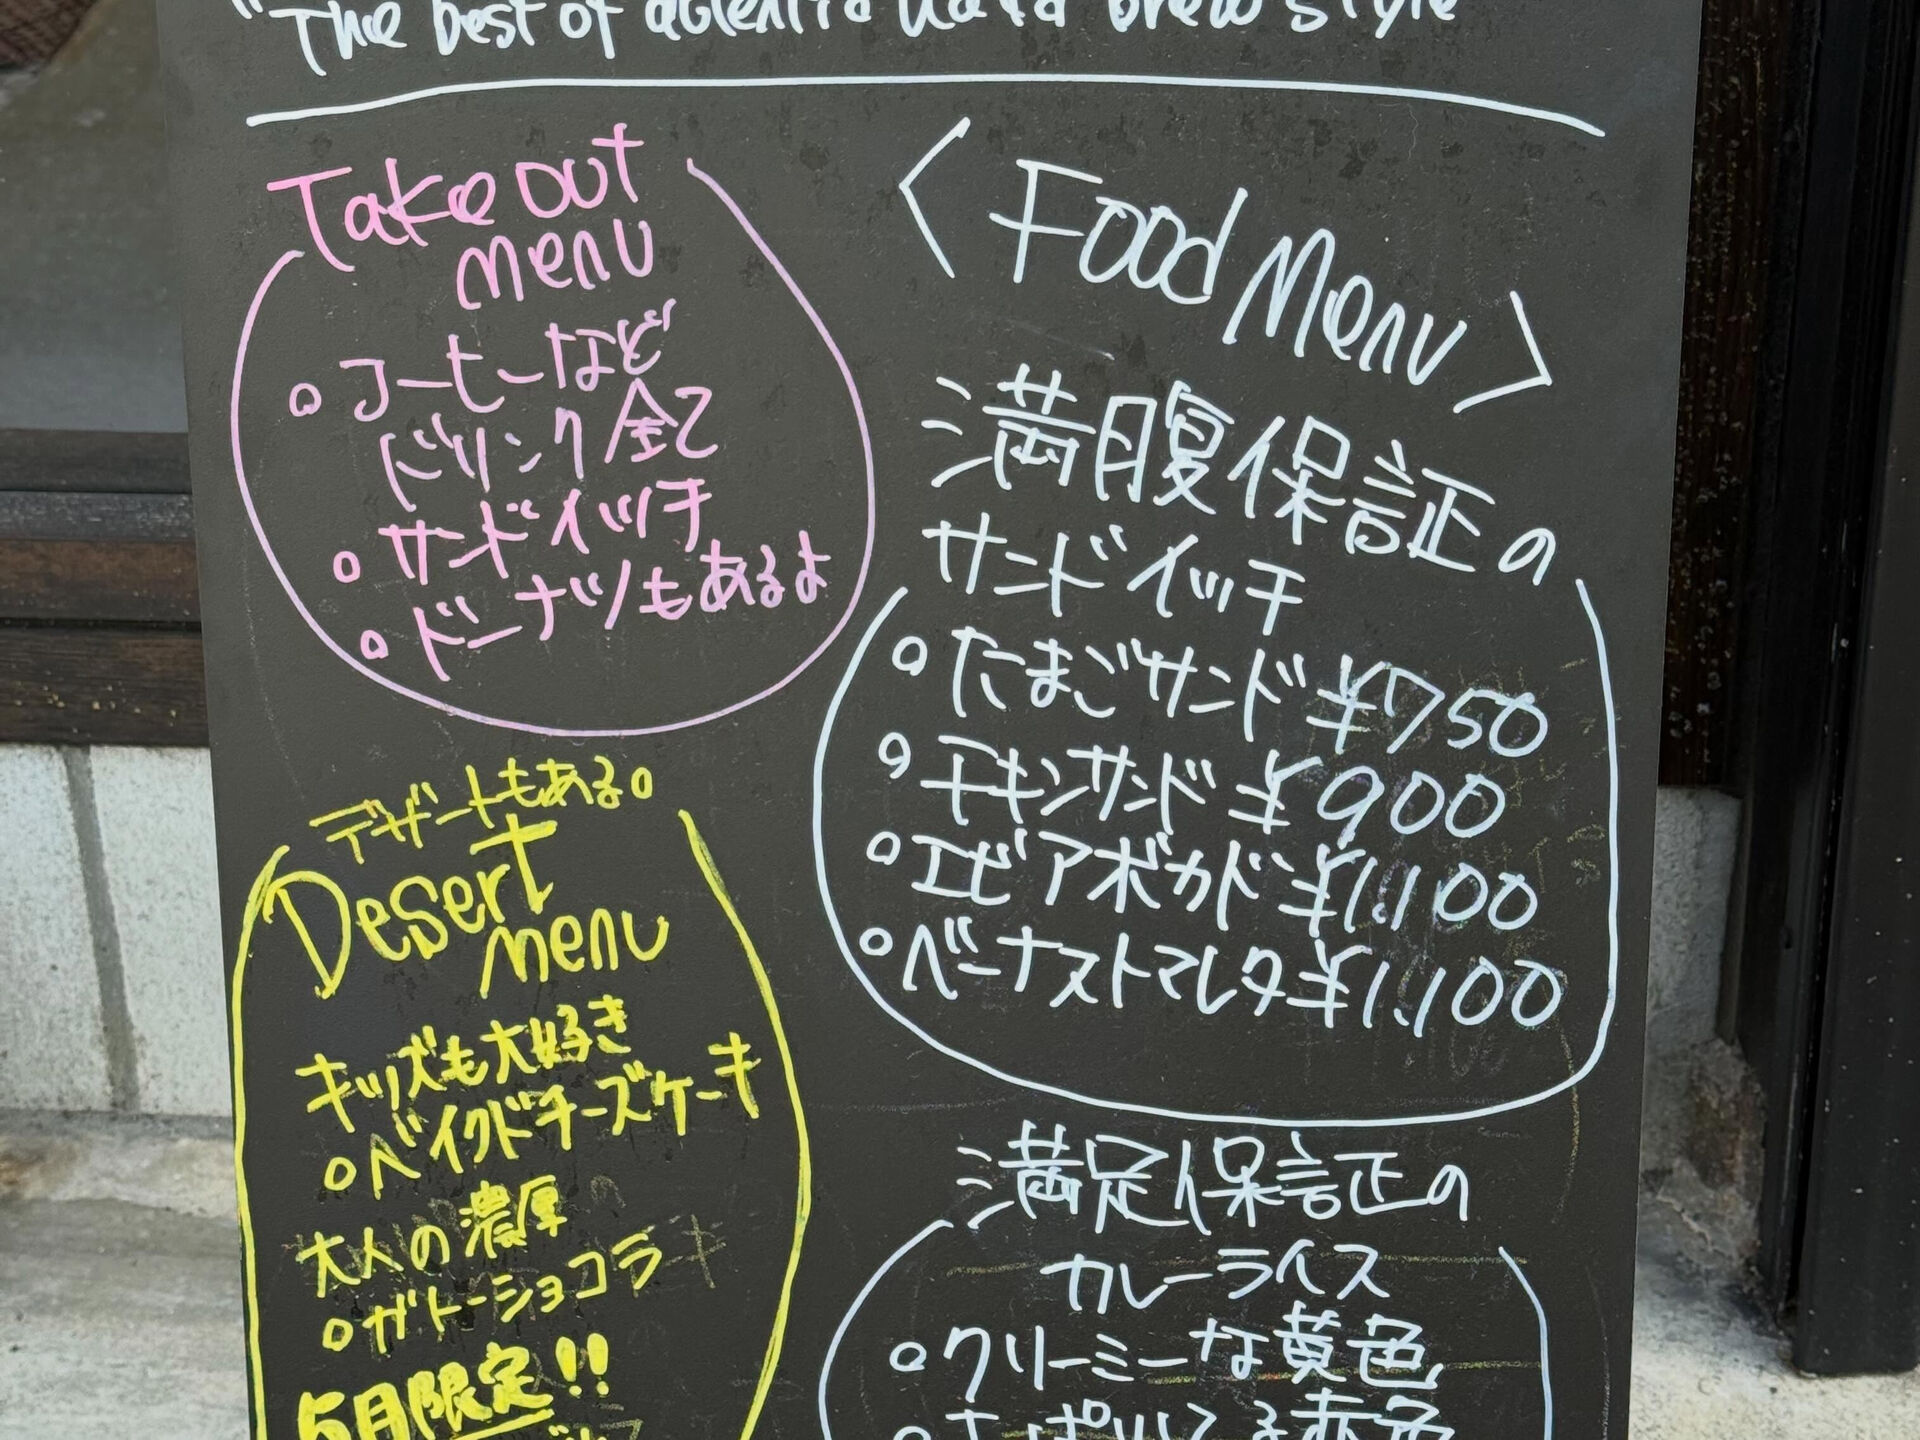 "The best of
brew style
Take out
menu
○ コーヒーなど
ドリンク全て
○ サンドイッチ
○ ドーナツもあるよ
デザートもある○
Desert
menu
キッズも大好き
○ ベイクドチーズケーキ
大人の濃厚
○ ガトーショコラ
5月限定!!
< Food Menu >
満腹保証の
サンドイッチ
○ たまごサンド ¥750
○ チキンサンド ¥900
○ エビアボカド ¥1,100
○ ベーナストマレタ ¥1,100
満足保証の
カレーライス
○ クリーミーな黄色